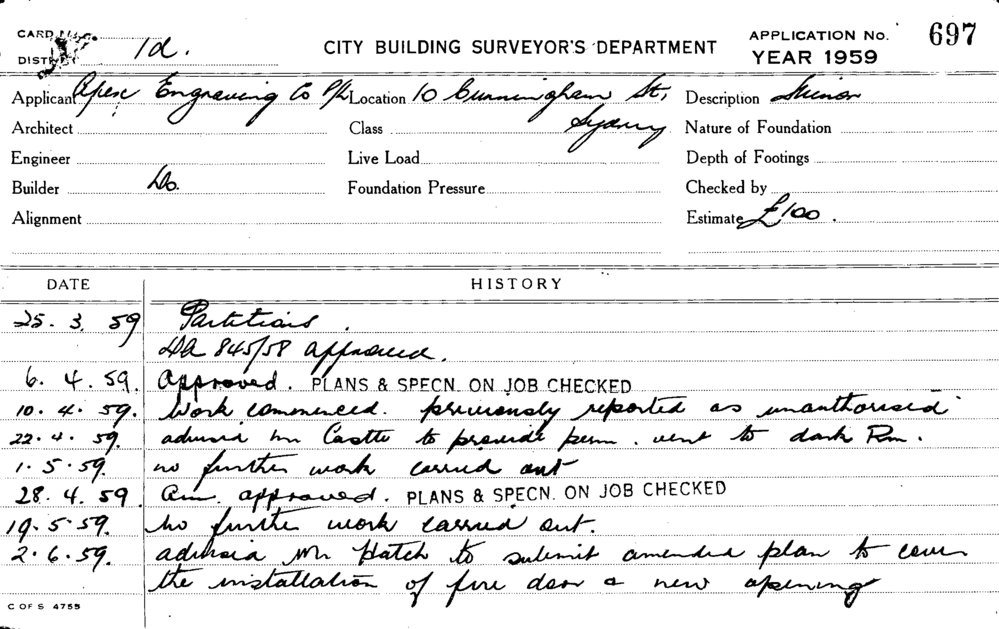 CARD No.
1d.
CITY BUILDING SURVEYOR'S DEPARTMENT
APPLICATION No. 697
DISTRICT
YEAR 1959
Applicant Apex Engraving Co P/L Location 10 Cunningham St, Description Minor
Architect Class Sydney Nature of Foundation
Engineer Live Load Depth of Footings
Builder Do. Foundation Pressure Checked by
Alignment Estimate £100.
DATE HISTORY
25. 3. 59 Partitions.
DA 845/58 approved.
6. 4. 59. Approved. PLANS & SPECN. ON JOB CHECKED
10. 4. 59. Work commenced. previously reported as unauthorised
22. 4. 59. advised Mr Castle to provide perm. vent to dark Rm.
1. 5. 59. no further work carried out
28. 4. 59 Am. approved. PLANS & SPECN. ON JOB CHECKED
19. 5. 59. No further work carried out.
2. 6. 59. advised Mr Hatch to submit amended plan to cover
the installation of fire door & new opening
C OF S 4755